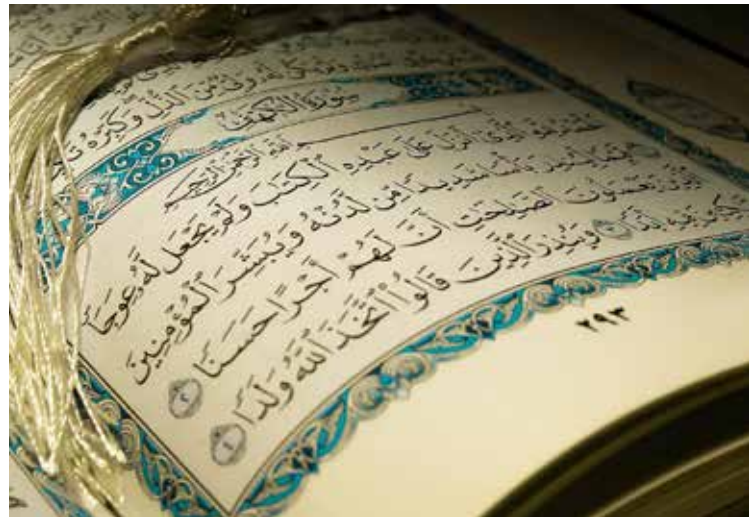 وَلِيٌّ مِّنَ ٱلذُّلِّ وَكَبِّرْهُ
سُورَةُ الكَهْفِ
بِسْمِ ٱللَّهِ ٱلرَّحْمَٰنِ ٱلرَّحِيمِ
ٱلْحَمْدُ لِلَّهِ ٱلَّذِىٓ أَنزَلَ عَلَىٰ عَبْدِهِ ٱلْكِتَٰبَ وَلَمْ يَجْعَل لَّهُۥ عِوَجَا
قَيِّمًا لِّيُنذِرَ بَأْسًا شَدِيدًا مِّن لَّدُنْهُ وَيُبَشِّرَ ٱلْمُؤْمِنِينَ
ٱلَّذِينَ يَعْمَلُونَ ٱلصَّٰلِحَٰتِ أَنَّ لَهُمْ أَجْرًا حَسَنًا ٢
مَّٰكِثِينَ فِيهِ أَبَدًا ٣ وَيُنذِرَ ٱلَّذِينَ قَالُوا۟ ٱتَّخَذَ ٱللَّهُ وَلَدًا ٤
٢٩٣